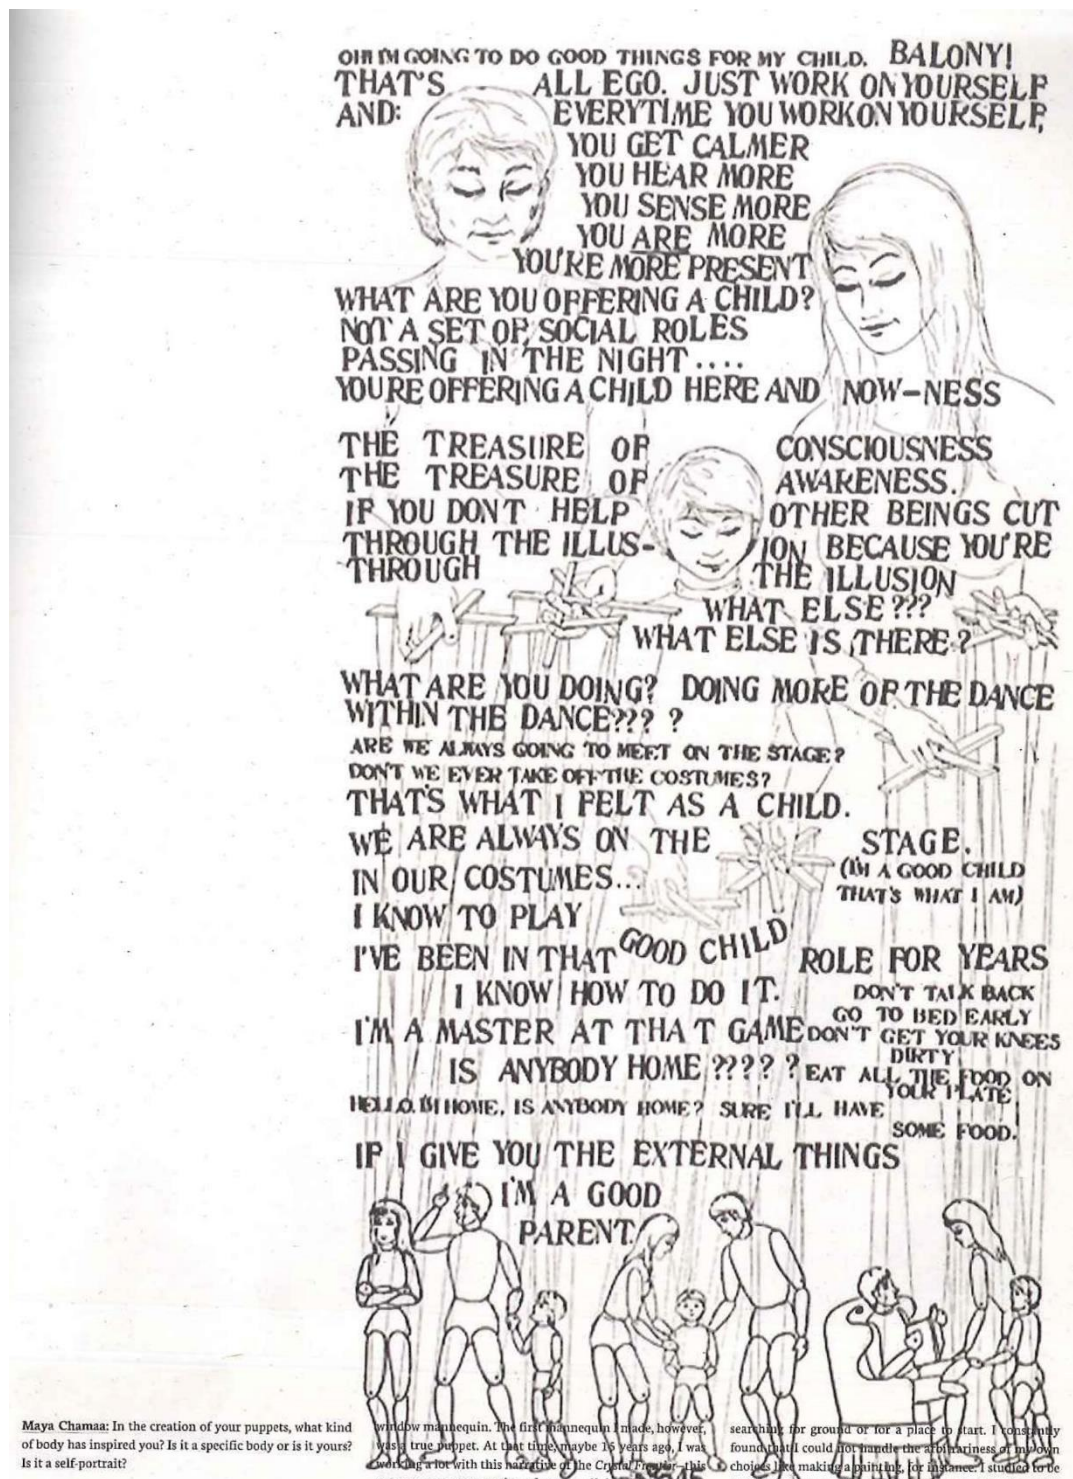 OH! I'M GOING TO DO GOOD THINGS FOR MY CHILD. BALONY!
THAT'S ALL EGO. JUST WORK ON YOURSELF
AND: EVERYTIME YOU WORK ON YOURSELF,
YOU GET CALMER
YOU HEAR MORE
YOU SENSE MORE
YOU ARE MORE
YOU'RE MORE PRESENT
WHAT ARE YOU OFFERING A CHILD?
NOT A SET OF SOCIAL ROLES
PASSING IN THE NIGHT ....
YOU'RE OFFERING A CHILD HERE AND NOW-NESS
THE TREASURE OF CONSCIOUSNESS
THE TREASURE OF AWARENESS.
IF YOU DON'T HELP OTHER BEINGS CUT
THROUGH THE ILLUS-ION BECAUSE YOU'RE
THROUGH THE ILLUSION
WHAT ELSE???
WHAT ELSE IS THERE?
WHAT ARE YOU DOING? DOING MORE OF THE DANCE
WITHIN THE DANCE??? ?
ARE WE ALWAYS GOING TO MEET ON THE STAGE?
DON'T WE EVER TAKE OFF THE COSTUMES?
THAT'S WHAT I FELT AS A CHILD.
WE ARE ALWAYS ON THE STAGE.
IN OUR COSTUMES...
(I'M A GOOD CHILD
THAT'S WHAT I AM)
I KNOW TO PLAY
I'VE BEEN IN THAT GOOD CHILD ROLE FOR YEARS
I KNOW HOW TO DO IT.
DON'T TALK BACK
GO TO BED EARLY
I'M A MASTER AT THAT GAME DON'T GET YOUR KNEES
DIRTY
IS ANYBODY HOME ???? ? EAT ALL THE FOOD ON
YOUR PLATE
HELLO. I'M HOME, IS ANYBODY HOME? SURE I'LL HAVE
SOME FOOD.
IF I GIVE YOU THE EXTERNAL THINGS
I'M A GOOD
PARENT.
Maya Chamaa: In the creation of your puppets, what kind
of body has inspired you? Is it a specific body or is it yours?
Is it a self-portrait?
window mannequin. The first mannequin I made, however,
was a true puppet. At that time, maybe 15 years ago, I was
working a lot with this narrative of the Crystal Frontier—this
searching for ground or for a place to start. I constantly
found that I could not handle the arbitrariness of my own
choices like making a painting, for instance. I studied to be